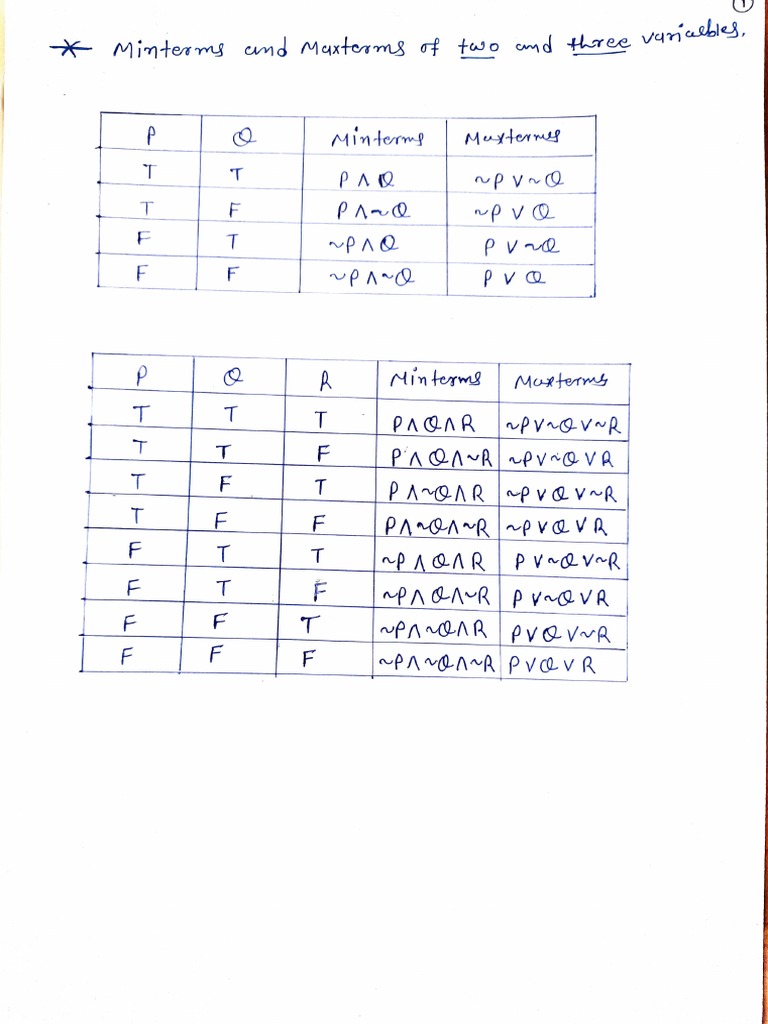 1
* Minterms and Maxterms of two and three variaebles.
P Q Minterms Maxtermes
T T P ∧ Q ~P ∨ ~Q
T F P ∧ ~Q ~P ∨ Q
F T ~P ∧ Q P ∨ ~Q
F F ~P ∧ ~Q P ∨ Q
P Q R Minterms Maxterms
T T T P ∧ Q ∧ R ~P ∨ ~Q ∨ ~R
T T F P ∧ Q ∧ ~R ~P ∨ ~Q ∨ R
T F T P ∧ ~Q ∧ R ~P ∨ Q ∨ ~R
T F F P ∧ ~Q ∧ ~R ~P ∨ Q ∨ R
F T T ~P ∧ Q ∧ R P ∨ ~Q ∨ ~R
F T F ~P ∧ Q ∧ ~R P ∨ ~Q ∨ R
F F T ~P ∧ ~Q ∧ R P ∨ Q ∨ ~R
F F F ~P ∧ ~Q ∧ ~R P ∨ Q ∨ R